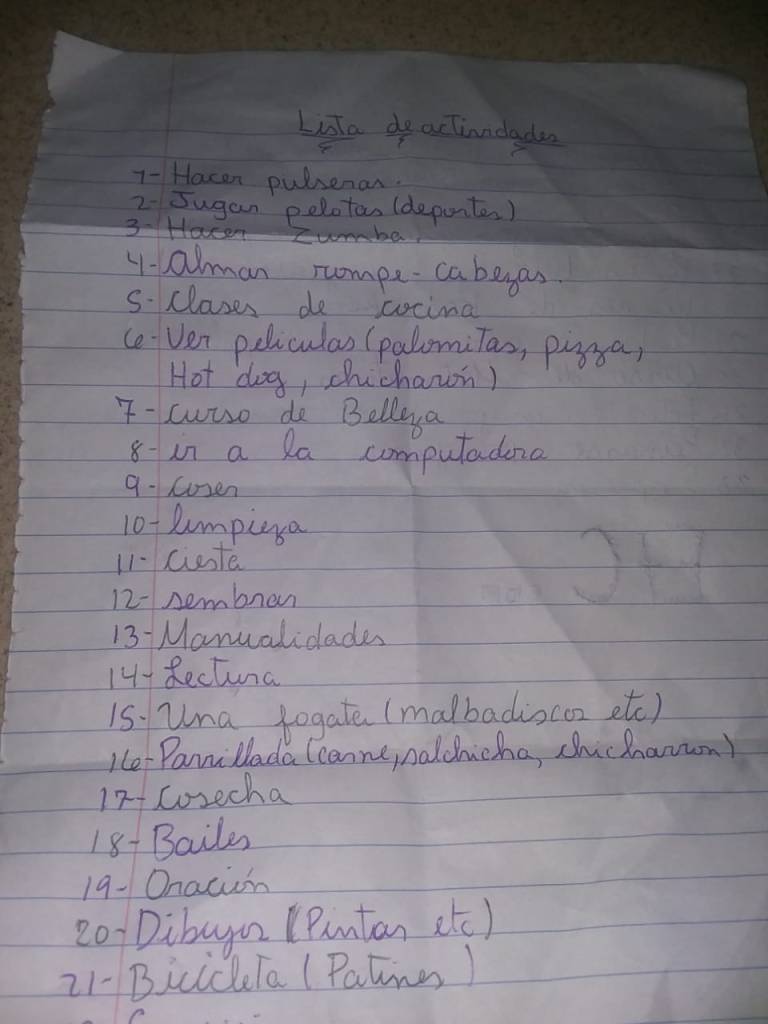 Lista de actividades
1- Hacer pulseras.
2- Jugar pelotas (deportes)
3- Hacer Zumba.
4- Almar rompe-cabezas.
5- Clases de cocina
6- Ver peliculas (palomitas, pizza,
Hot dog, chicharón)
7- curso de Belleza
8- ir a la computadora
9- coser
10- limpieza
11- Ciesta
12- sembrar
13- Manualidades
14- Lectura
15- Una fogata (malbadiscos etc)
16- Parrillada (carne, salchicha, chicharron)
17- Cosecha
18- Bailes
19- Oración
20- Dibujos (Pintar etc)
21- Bicicleta (Patines)